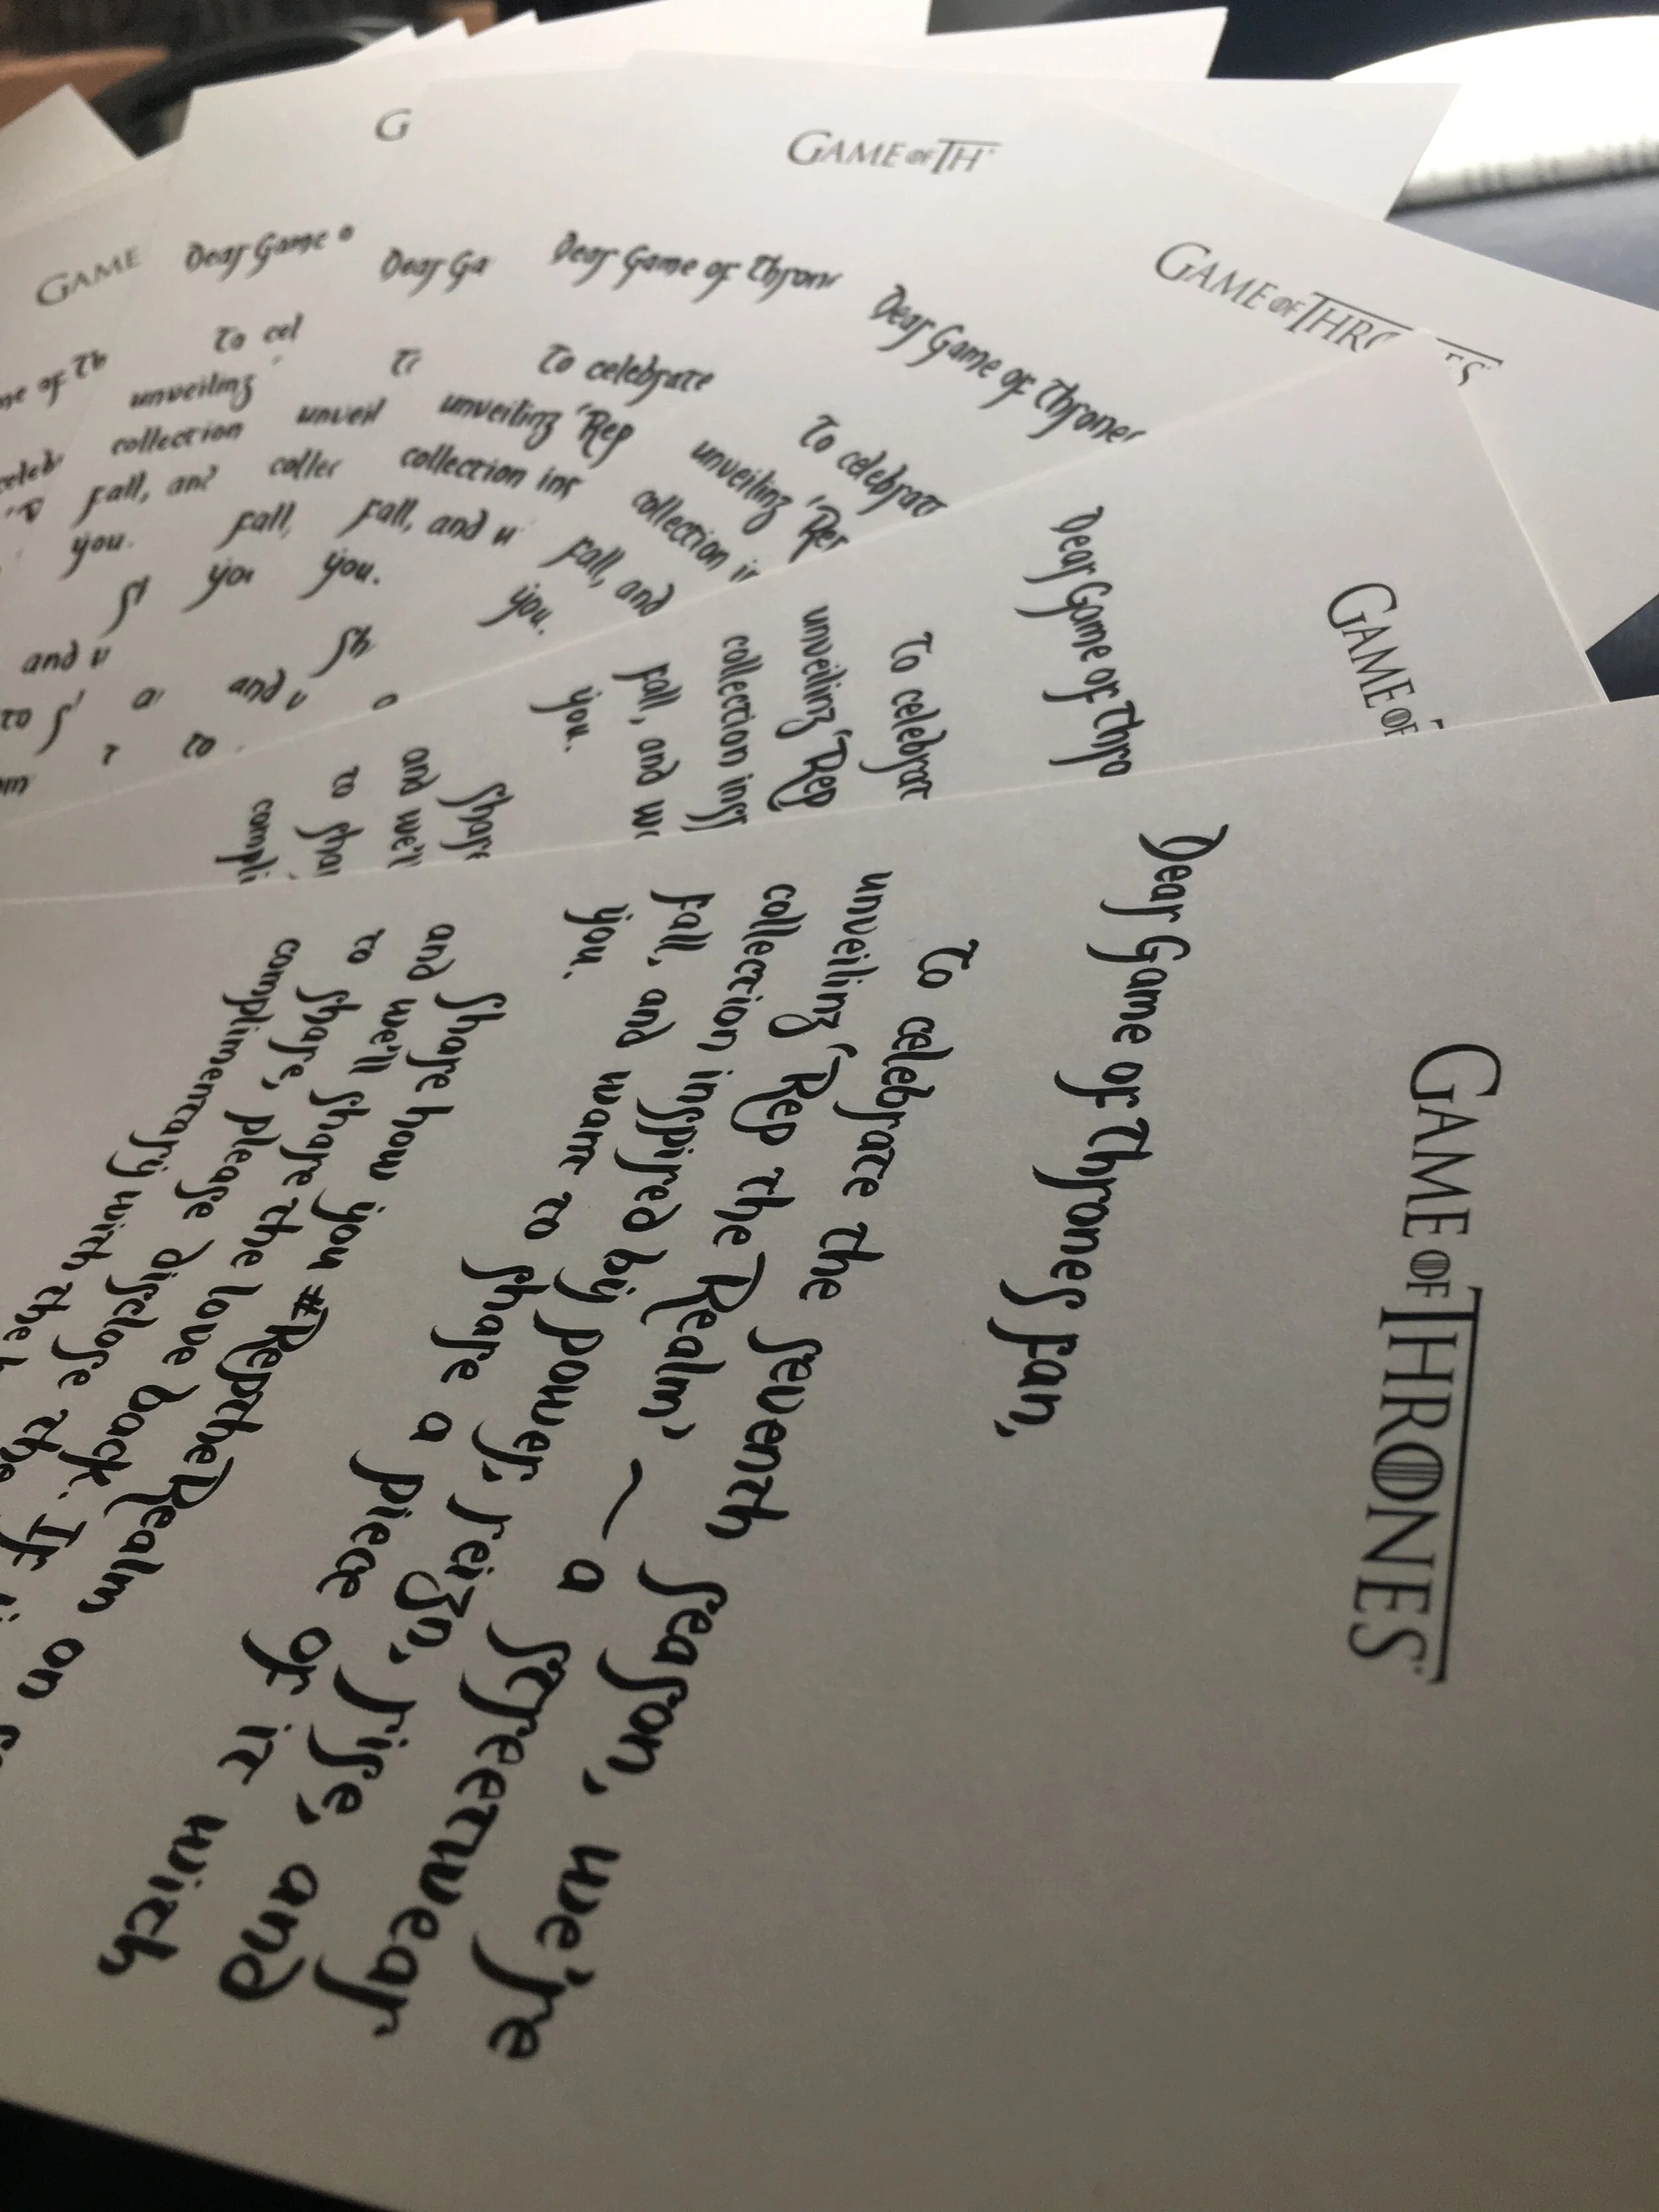 GAME OF THRONES
Dear Game of Thrones fan,
To celebrate the seventh season, we're
unveiling 'Rep the Realm' ~ a streetwear
collection inspired by power, reign, rise, and
fall, and want to share a piece of it with
you.
Share how you #ReptheRealm on
and we'll share the love back. If
to share, please disclose the
complimentary with the
GAME OF
Dear Game of Thro
To celebrat
unveiling 'Rep
collection insp
fall, and we
you.
Share
and we'll
to shar
compli
GAME OF THRONES
Dear Game of Thrones
To celebrat
unveiling 'Rep
collection in
fall, and
you.
GAME OF TH
Dear Game of Thron
To celebrate
unveiling 'Rep
collection ins
fall, and w
you.
Sh
and w
to
G
Dear Ga
T
unveil
collec
fall,
you
Dear Game o
To cel
unveiling
collection
fall, and
you.
GAME
me of Th
celeb
and w
to s